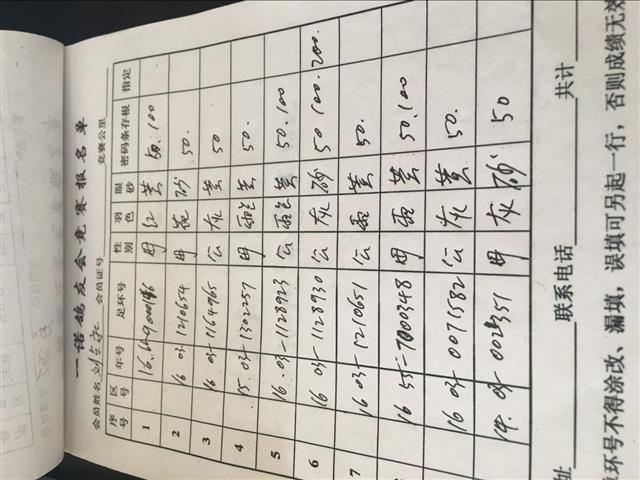 一诺鸽友会竞赛报名单
会员姓名 会员证号 竞赛公里
序号 区号 年号 足环号 性别 羽色 眼砂 密码条存根 指定
1 16. 红 黄 50.100
2 16 03-1210654 花 砂 50.
3 16 03-1164965 公 灰 黄 50
4 15.03-1302257 雨点 黄 50.
5 16.03-1128923 公 雨点 黄 50.100
6 16 03-1128930 公 灰 砂 50 100.200.
7 16 03-1210651 公 雨 黄 50.
16 55-7000348 雨 黄 50.100
16 03-0071582 公 灰 黄 50.
14. 灰 砂 50
址 联系电话 共计
环号不得涂改、漏填,误填可另起一行,否则成绩无效